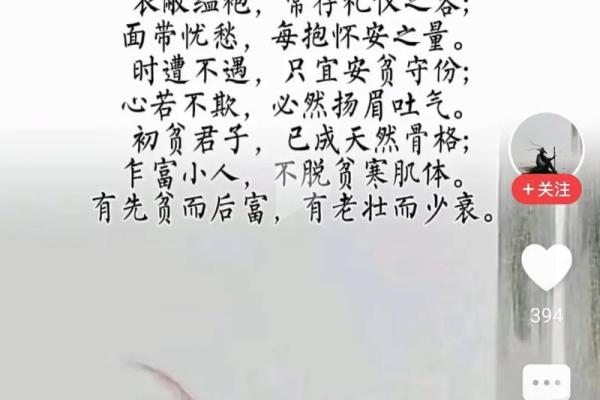 衣敝缊袍，常存礼仪之容；
面带忧愁，每抱怀安之量。
时遭不遇，只宜安贫守份；
心若不欺，必然扬眉吐气。
初贫君子，已成天然骨格；
乍富小人，不脱贫寒肌体。
有先贫而后富，有老壮而少衰。
+关注
394